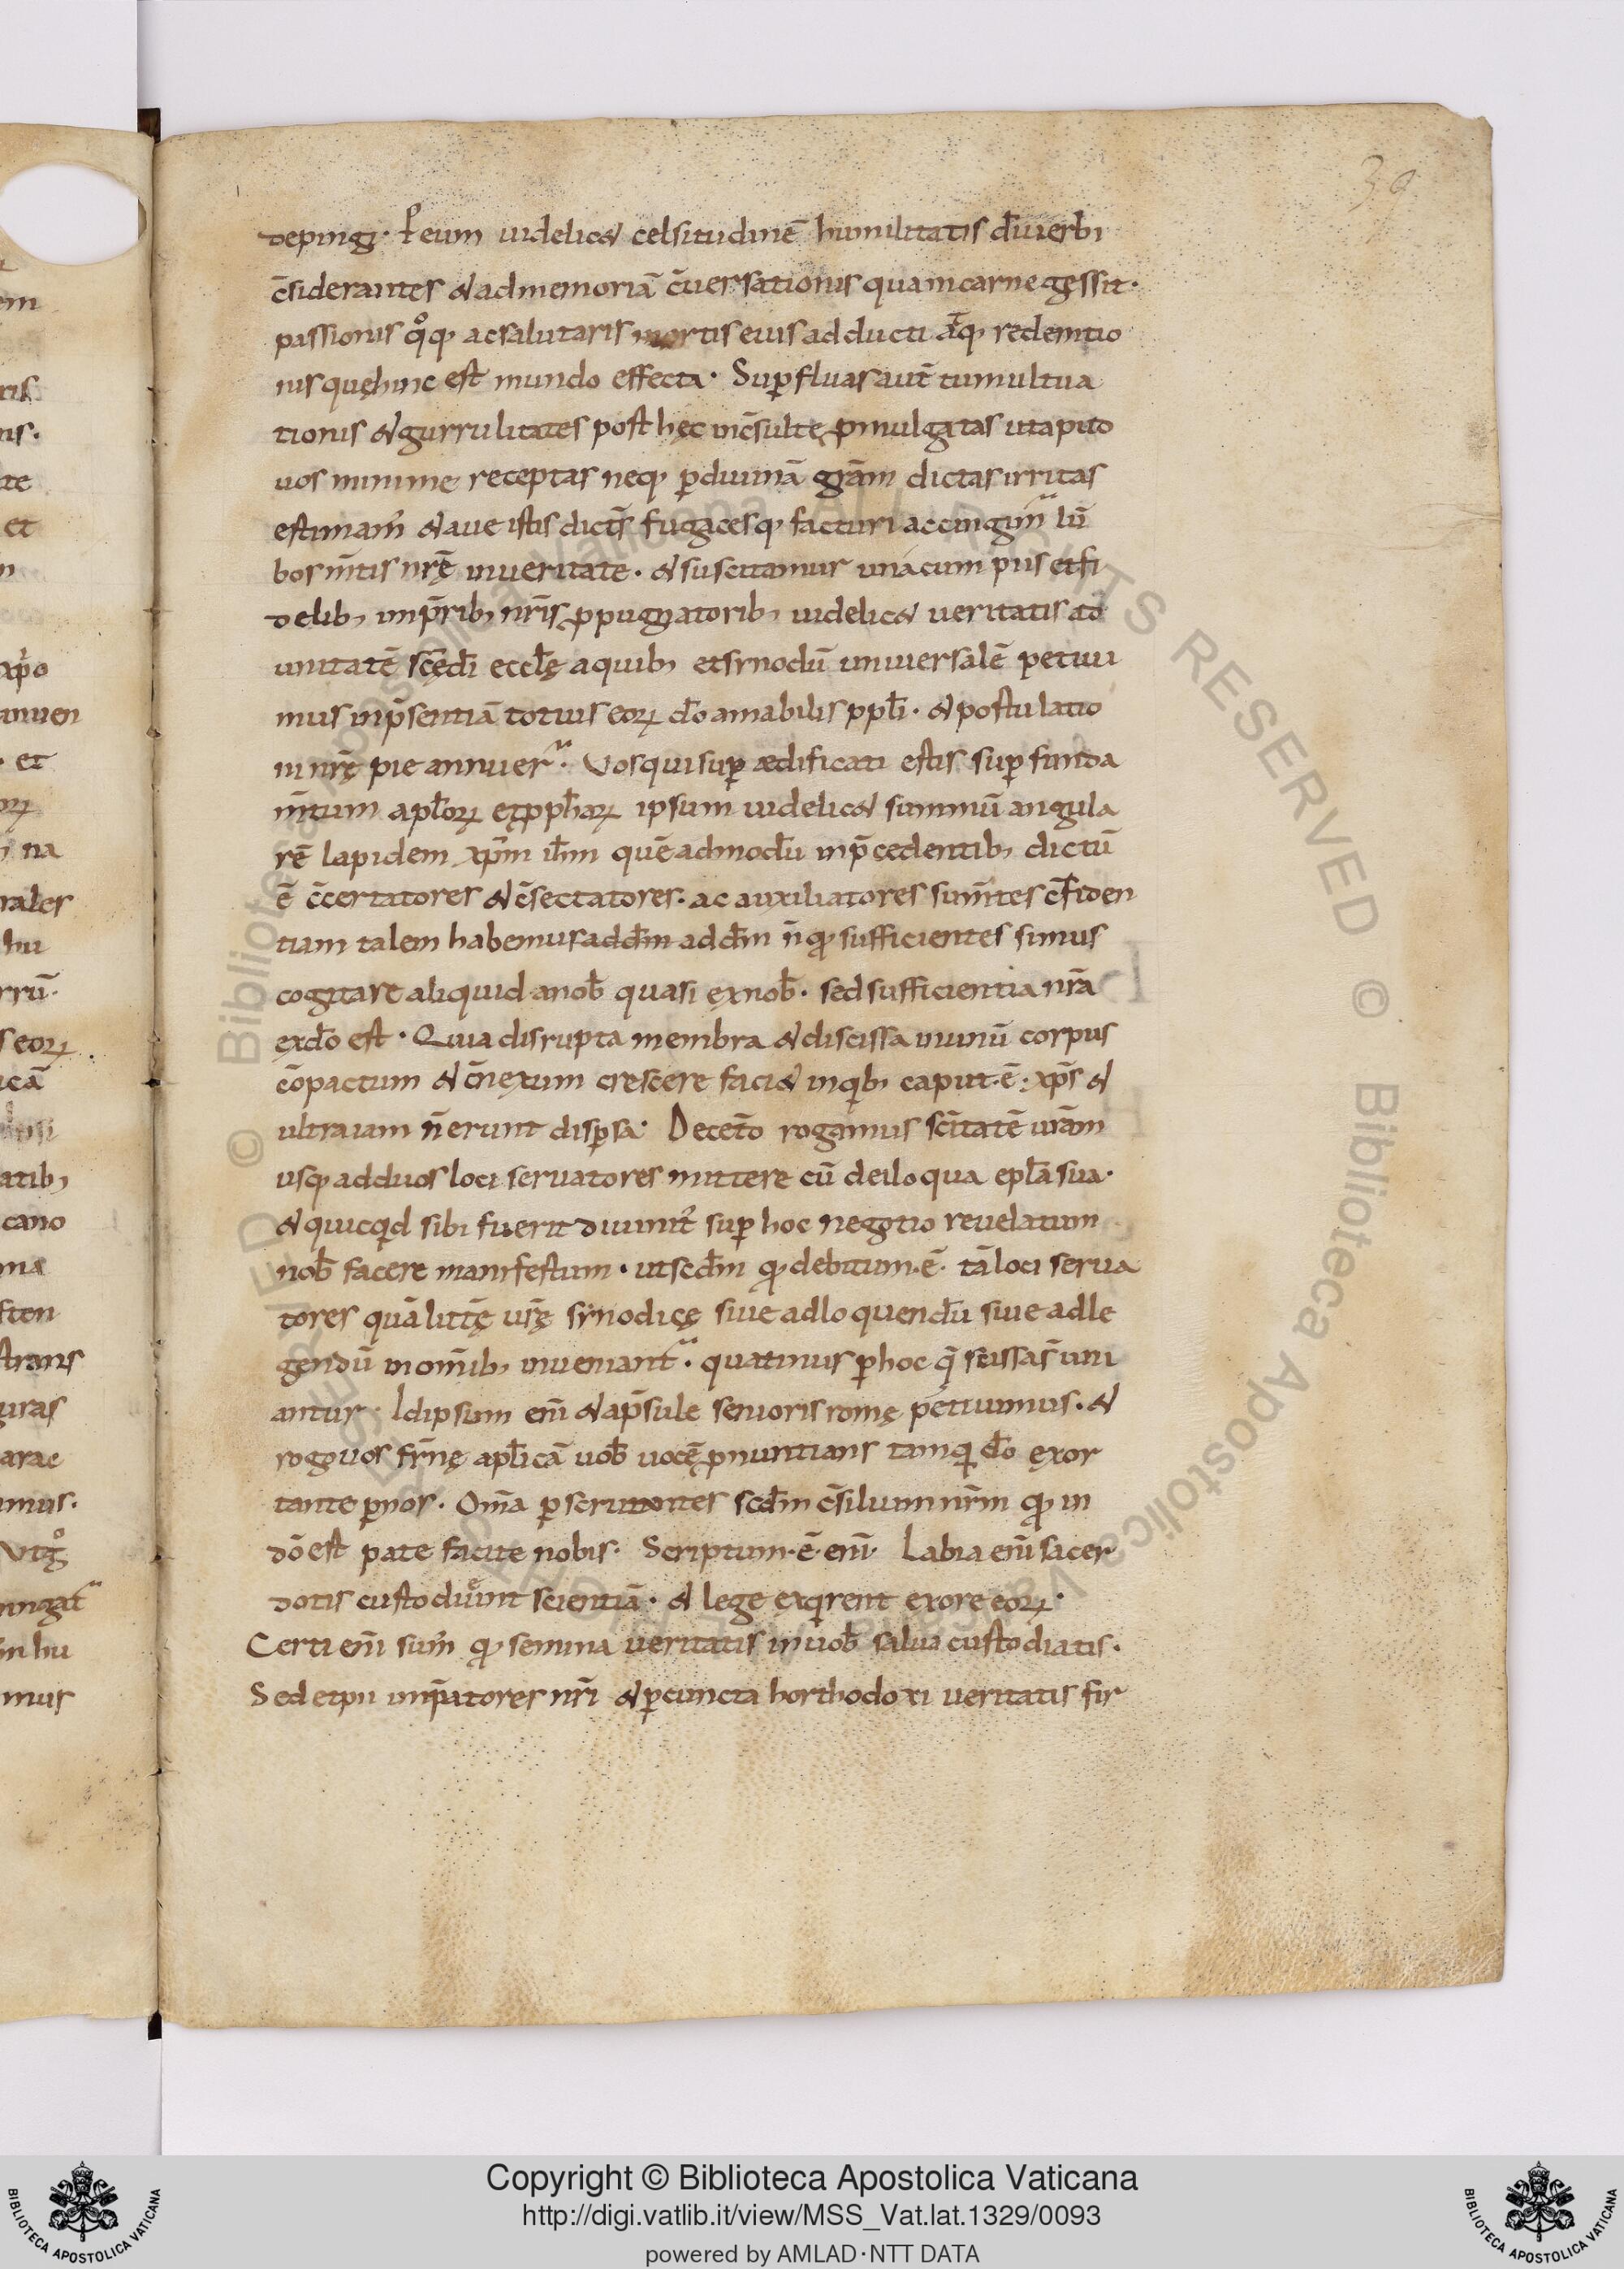 39
depingi. Peum uidelic& celsitudinē humilitatis dī uerbi
c̄siderantes & ad memoriā c̄uersationis qua incarne gessit.
passionis qoq; ac salutaris mortis eius adducti atq; redemtio
nis quę hinc est mundo effecta. Supfluas aut̄ tumultua
tionis & gurrulitates post hęc inc̄sulte pmulgatas uta puto
uos minime receptas neq; p diuinā grām dictas irritas
estimam̄ & aue istis dictis fugacesq; facturi accingim lū
bos m̄tis nr̄ę in ueritate. & suscitamur una cum piis et fi
delib; imp̄rib; nr̄is ppugnatorib; uidelic& ueritatis ad
unitatē sc̄ę dī eccl̄ę a quib; et sinodū uniuersalē petiui
mus inp̄sentiā totius eoꝝ dō amabilis ppl̄i. & postulatio
ni nr̄ę pie annuer. Vos qui sup ædificati estis sup funda
m̄tum apl̄oꝝ & pph̄aꝝ ipsum uidelic& summū angula
rē lapidem xp̄m ih̄m quē admodū inp̄cedentib; dictū
ē c̄certatores & c̄sectatores. ac auxiliatores sum̄tes c̄fiden
tiam talem habemus ad dm̄ ad dm̄ n̄ qđ sufficientes simus
cogitare aliquid a nob̄ quasi ex nob̄. sed sufficientia nr̄a
ex dō est. Quia disrupta membra & discissa in unū corpus
cōpactum & c̄nexum crescere faci& in qb; caput. ē. xp̄s &
ultra iam n̄ erunt dispsa. De cet̄o rogamus sc̄itatē ur̄am
usq; ad duos loci seruatores mittere cū deiloqua epl̄a sua.
& quicqd sibi fuerit diuinit̄ sup hoc negotio reuelatum
nob̄ facere manifestum. ut scdm̄ qđ debitum. ē. tā loci serua
tores quā littę ur̄ę synodicę siue ad loquendū siue ad le
gendū in om̄ib; inueniant. quatinus p hoc q̄ scissa s̄ uni
antur. Id ipsum en̄i & a p̄sule senioris romę petiuimus. &
rogo uos fr̄nę apl̄icā uob̄ uocē pnuntians tamq dō exor
tante p nos. Om̄a pscrutantes scdm̄ c̄silium nr̄m qđ in
dō est pate facite nobis. Scriptum. ē. en̄i. Labia en̄i sacer
dotis custodiunt scientiā. & lege exqrent ex ore eoꝝ.
Certi en̄i sum̄ qđ semina ueritatis in uob̄ salua custodiatis.
Sed et pii imp̄atores nr̄i & p cuncta horthodoxi ueritatis fir
Copyright © Biblioteca Apostolica Vaticana
http://digi.vatlib.it/view/MSS_Vat.lat.1329/0093
powered by AMLAD·NTT DATA
BIBLIOTECA APOSTOLICA VATICANA
BIBLIOTECA APOSTOLICA VATICANA